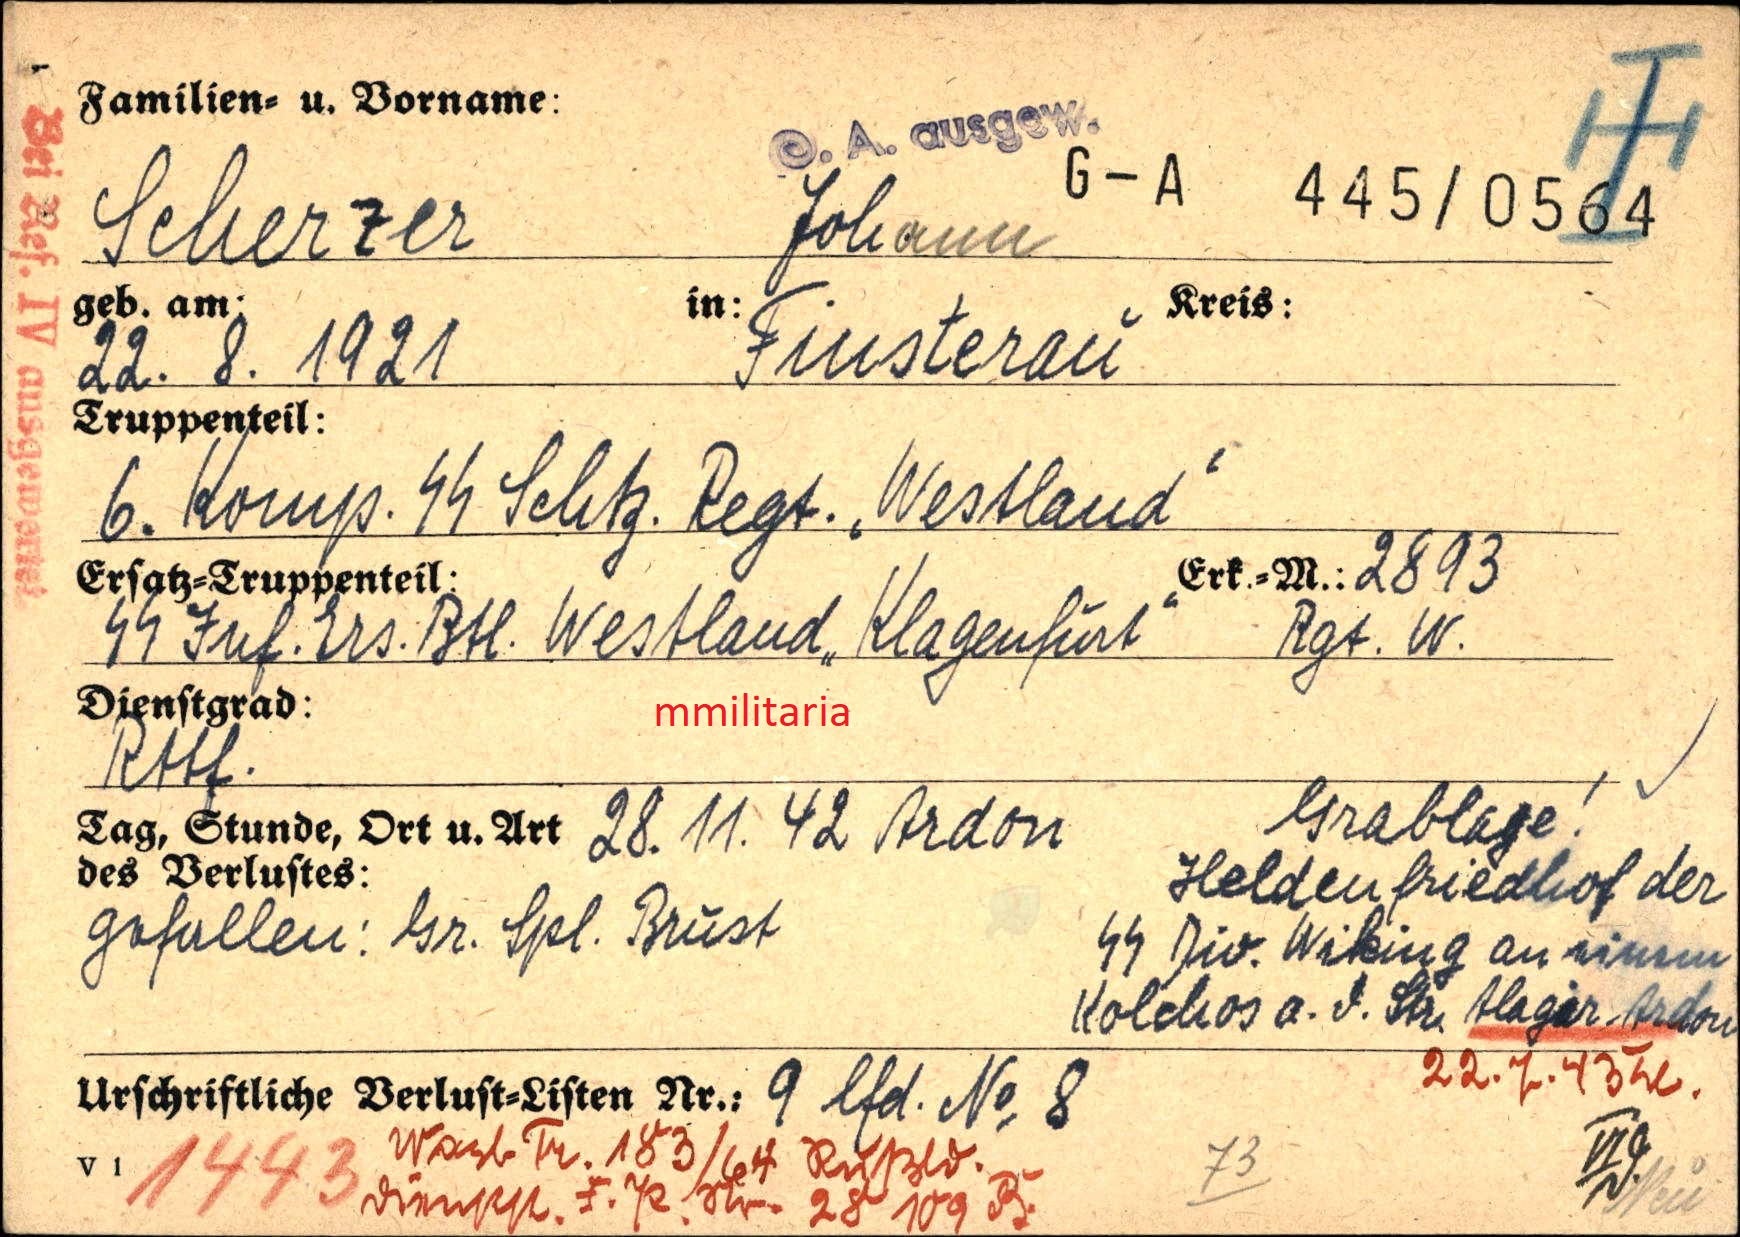 Familien- u. Vorname:
O. A. ausgew.
G-A 445/0564
Scherzer Johann
geb. am: in: Kreis:
22. 8. 1921 Finsterau
Truppenteil:
6. Komp. SS Schtz. Regt. „Westland“
Ersatz-Truppenteil: Erk.-M.: 2893
SS Inf. Ers. Btl. Westland „Klagenfurt“ Rgt. W.
Dienstgrad:
mmilitaria
Rttf.
Tag, Stunde, Ort u. Art 28. 11. 42 Ardon
des Verlustes:
gefallen: Gr. Spl. Brust
Grablage!
Heldenfriedhof der
SS Div. Wiking an einem
Kolchos a. d. Str. Alagir-Ardon
22. 7. 43
Urschriftliche Verlust-Listen Nr.: 9 lfd. No. 8
V 1
1443
183/64 Rußld.
F. P. Nr. 28 109
73
Bei Ref. IV ausgewertet